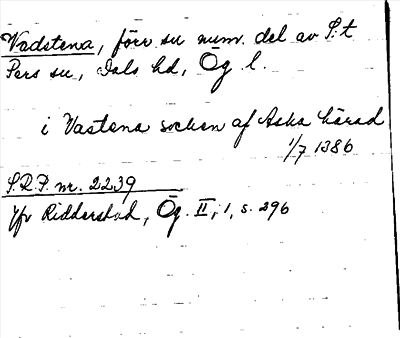 Vadstena, förr sn num. del av S:t
Pers sn, Dals hd, Ög l.
i Vastena socken af Aska härad
1/7 1386
S.R.P. nr. 2239
Jfr Ridderstad, Ög. II, 1, s. 296